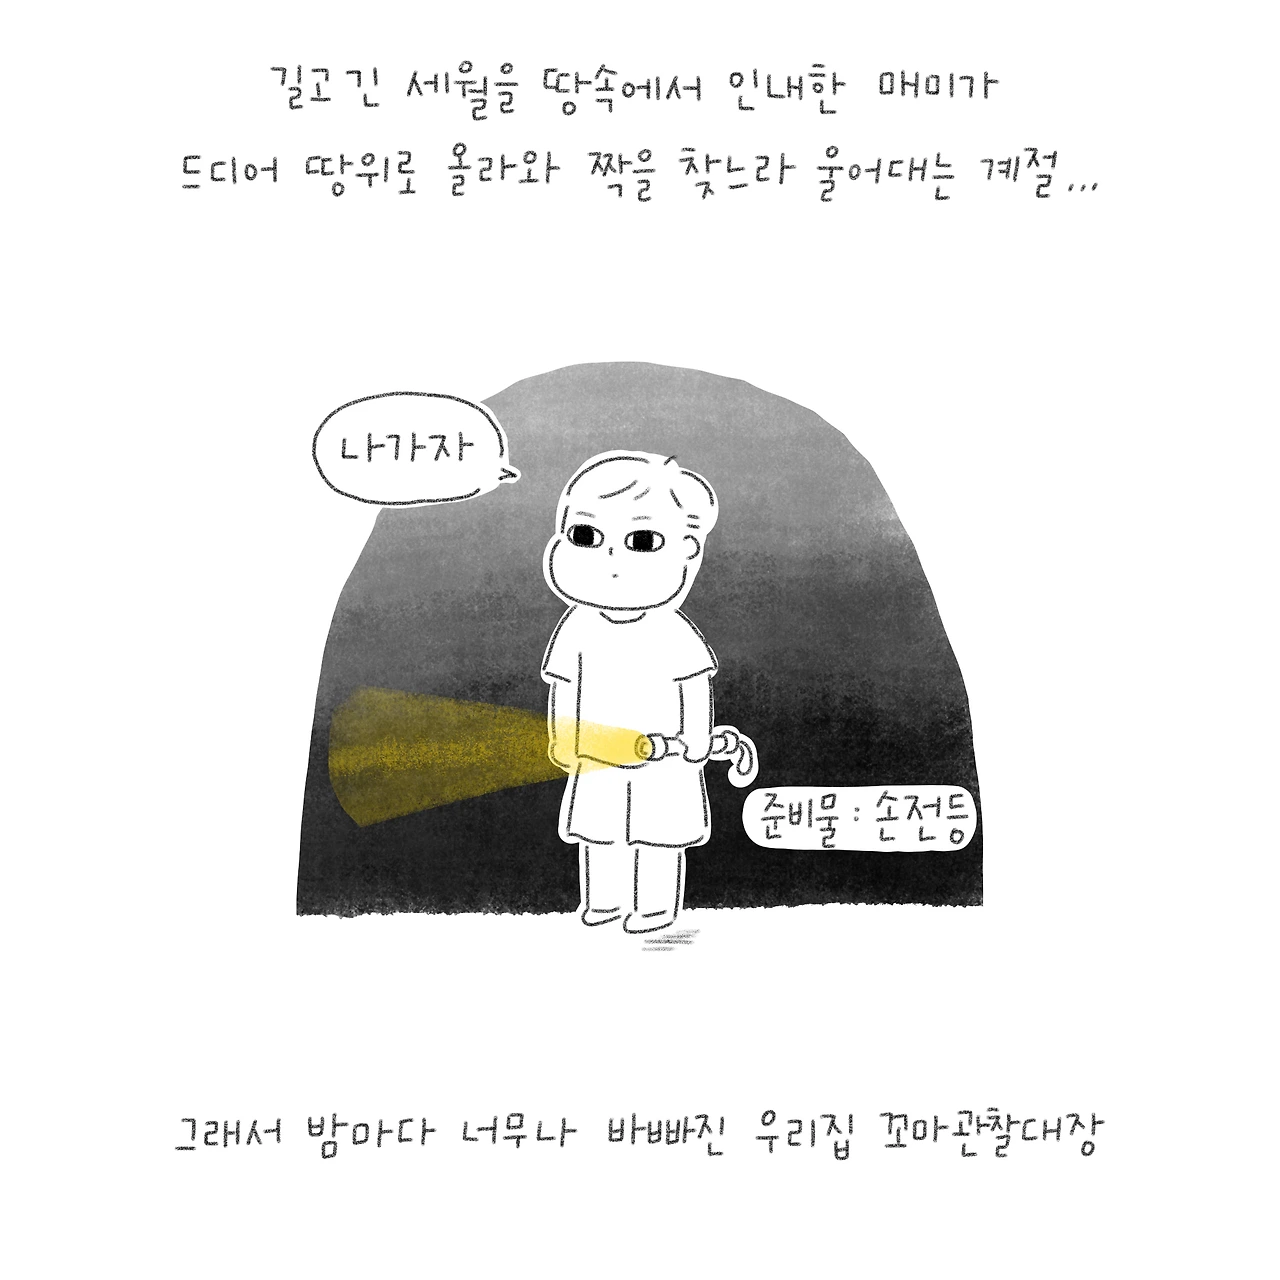 길고 긴 세월을 땅속에서 인내한 매미가
드디어 땅위로 올라와 짝을 찾느라 울어대는 계절...
나가자
준비물 : 손전등
그래서 밤마다 너무나 바빠진 우리집 꼬마관찰대장